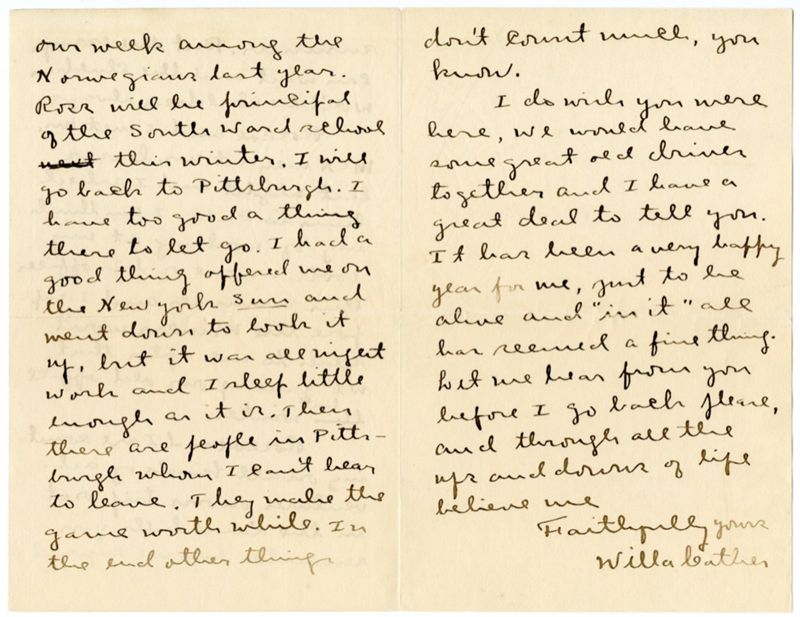 our week among the
Norwegians last year.
Ross will be principal
of the South Ward school
next this winter. I will
go back to Pittsburgh. I
have too good a thing
there to let go. I had a
good thing offered me on
the New York Sun and
went down to look it
up, but it was all night
work and I sleep little
enough as it is. Then
there are people in Pitts-
burgh whom I can't bear
to leave. They make the
game worth while. In
the end other things
don't count much, you
know.
I do wish you were
here, we would have
some great old drives
together and I have a
great deal to tell you.
It has been a very happy
year for me, just to be
alive and "in it" all
has seemed a fine thing.
Let me hear from you
before I go back please,
and through all the
ups and downs of life
believe me
Faithfully yours
Willa Cather